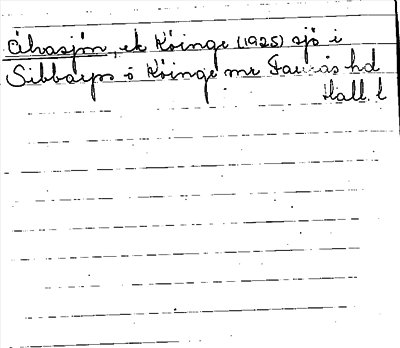 Älvasjön, ek Köinge (1925) sjö i
Sibbarps o Köinge snr Faurås hd
Hall. l